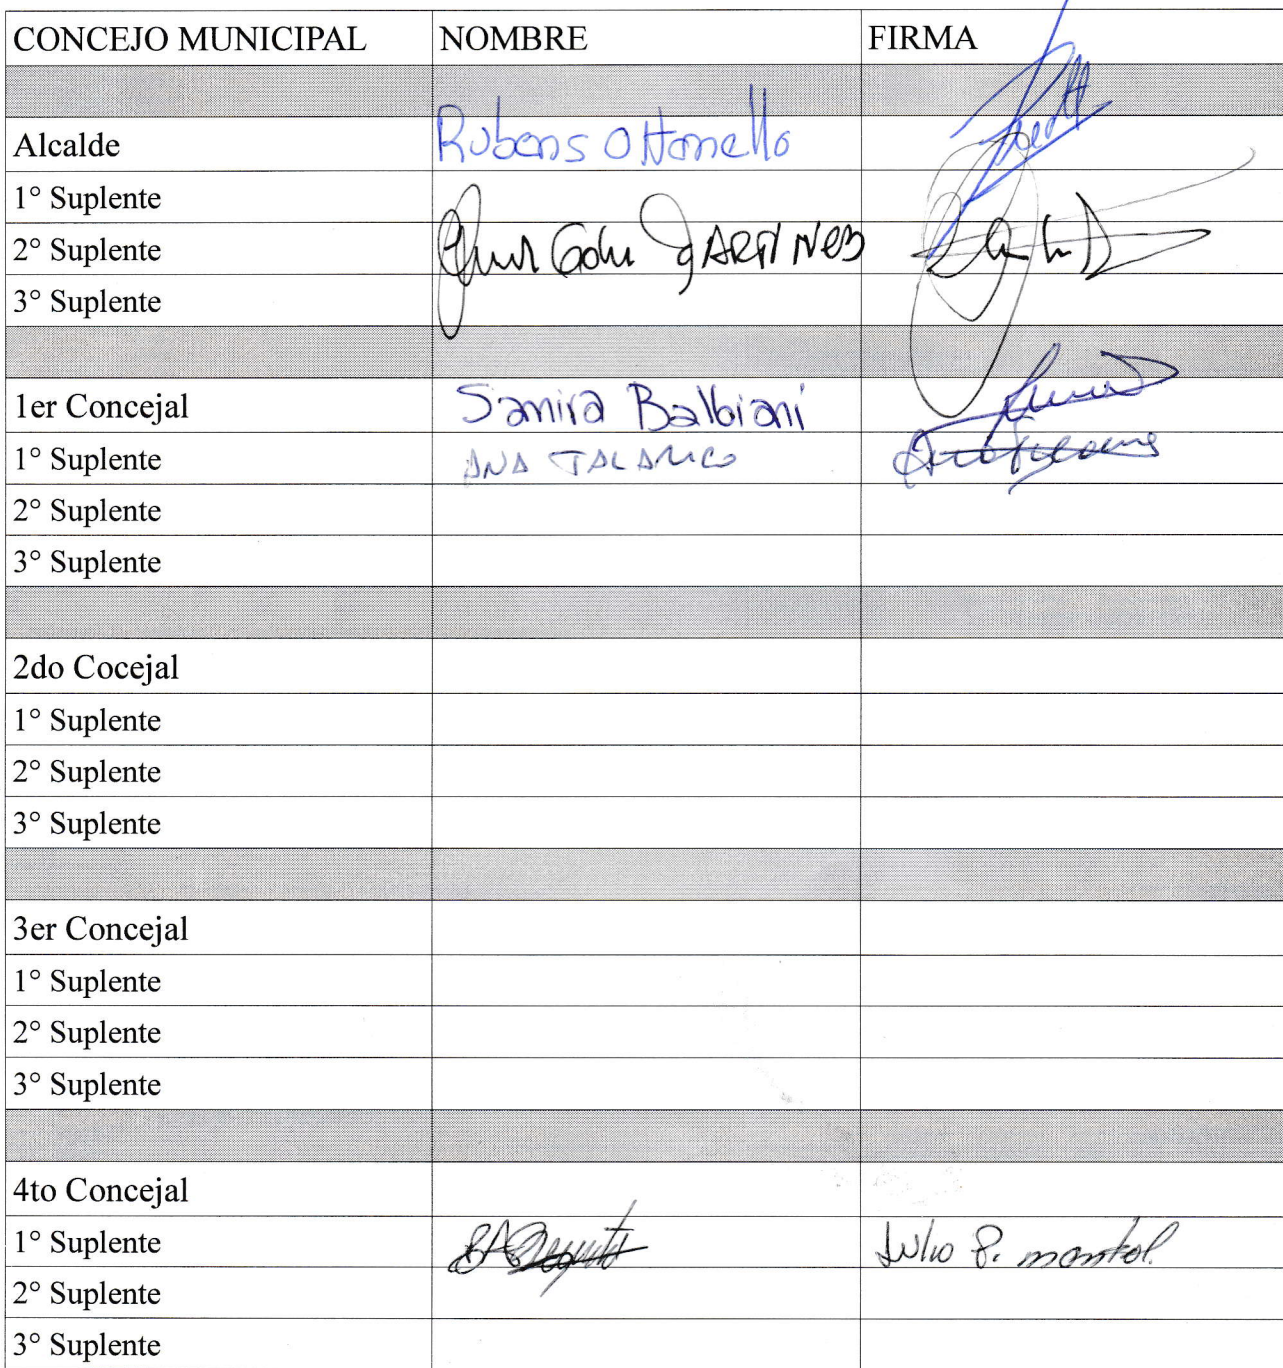 CONCEJO MUNICIPAL NOMBRE FIRMA
Alcalde Rubens Ottonello
1° Suplente
2° Suplente
3° Suplente
1er Concejal Samira Balbiani
1° Suplente ANA TALARICO
2° Suplente
3° Suplente
2do Cocejal
1° Suplente
2° Suplente
3° Suplente
3er Concejal
1° Suplente
2° Suplente
3° Suplente
4to Concejal
1° Suplente Julio P.
2° Suplente
3° Suplente